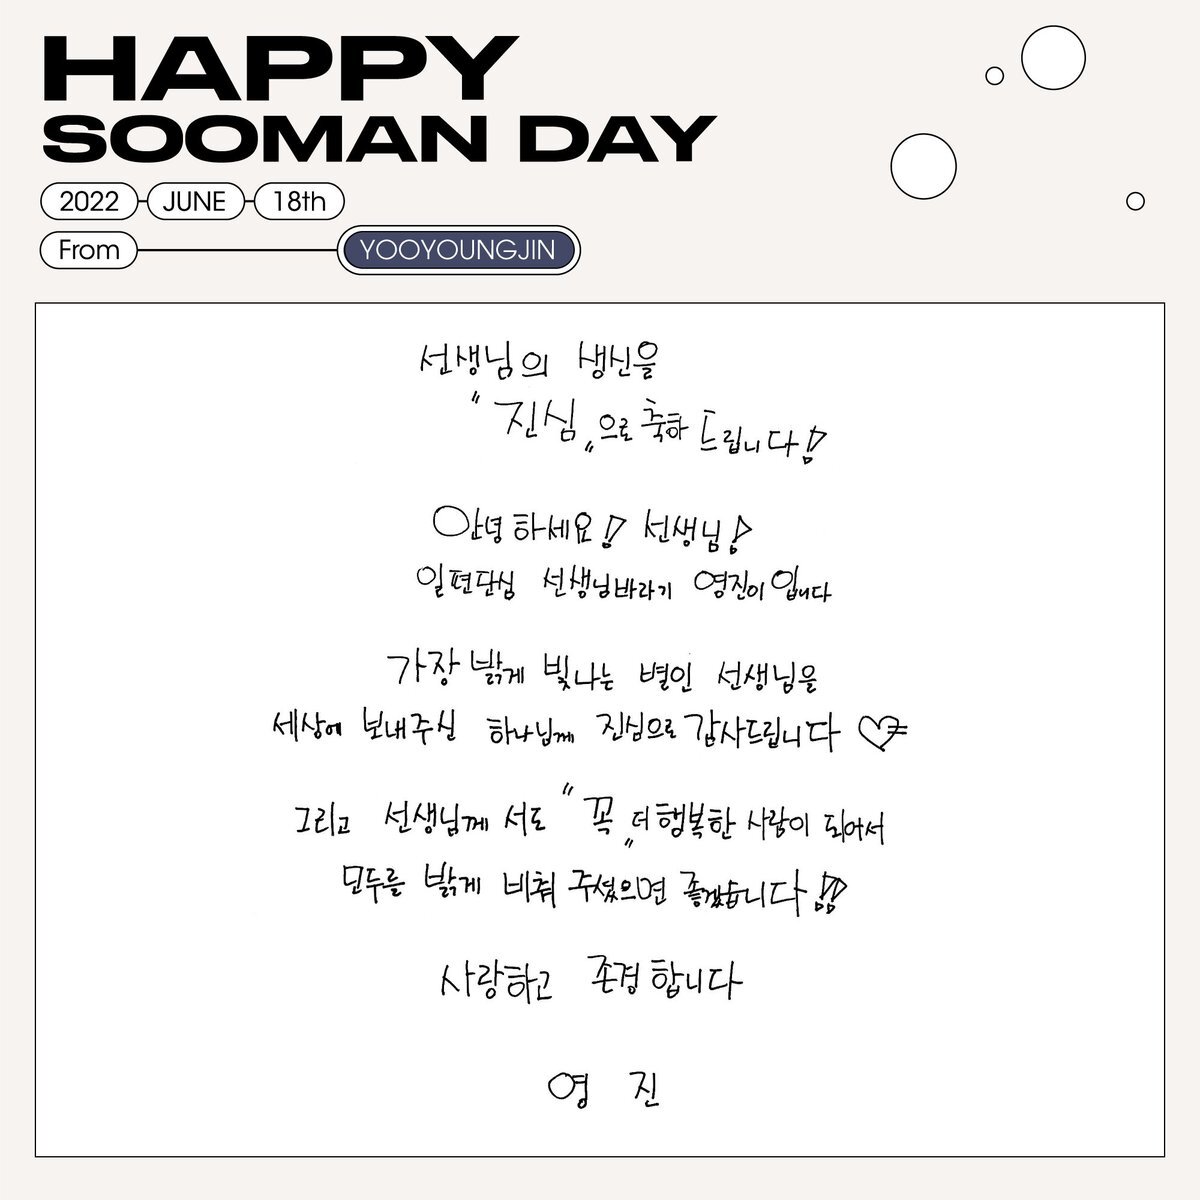 HAPPY
SOOMAN DAY
2022 JUNE 18th
From YOOYOUNGJIN
선생님의 생신을
"진심"으로 축하 드립니다!
안녕하세요! 선생님!
일편단심 선생님바라기 영진이입니다
가장 밝게 빛나는 별인 선생님을
세상에 보내주신 하나님께 진심으로 감사드립니다♡
그리고 선생님께서도 "꼭" 더 행복한 사람이 되어서
모두를 밝게 비춰 주셨으면 좋겠습니다!!
사랑하고 존경합니다
영 진